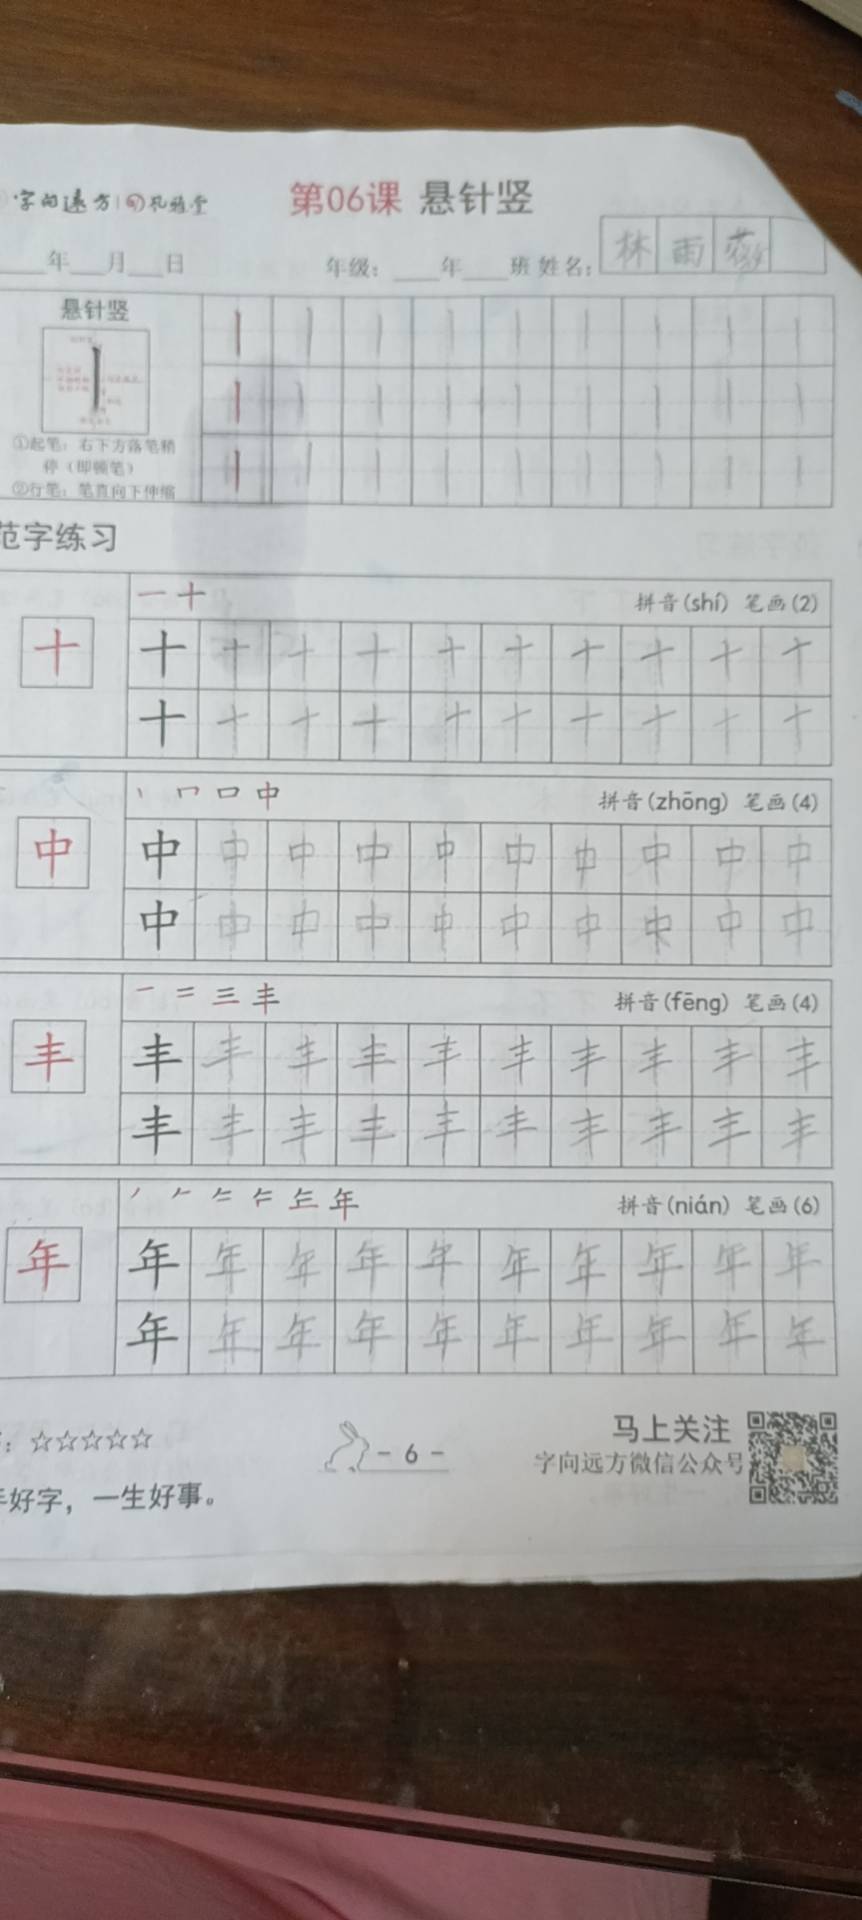 字向远方 礼雅堂
第06课 悬针竖
年 月 日 年级: 年 班 姓名: 林 雨 薇
悬针竖
①起笔:右下方落笔稍
停(即顿笔)
②行笔:笔直向下伸缩
范字练习
一 十 拼音(shí) 笔画(2)
十 十 十 十 十 十 十 十 十 十 十
十 十 十 十 十 十 十 十 十 十
丨 口 中 拼音(zhōng) 笔画(4)
中 中 中 中 中 中 中 中 中 中 中
中 中 中 中 中 中 中 中 中 中
一 二 三 丰 拼音(fēng) 笔画(4)
丰 丰 丰 丰 丰 丰 丰 丰 丰 丰 丰
丰 丰 丰 丰 丰 丰 丰 丰 丰 丰
年 拼音(nián) 笔画(6)
年 年 年 年 年 年 年 年 年 年 年
年 年 年 年 年 年 年 年 年 年
: ☆☆☆☆☆
- 6 -
马上关注
字向远方微信公众号
好字,一生好事。